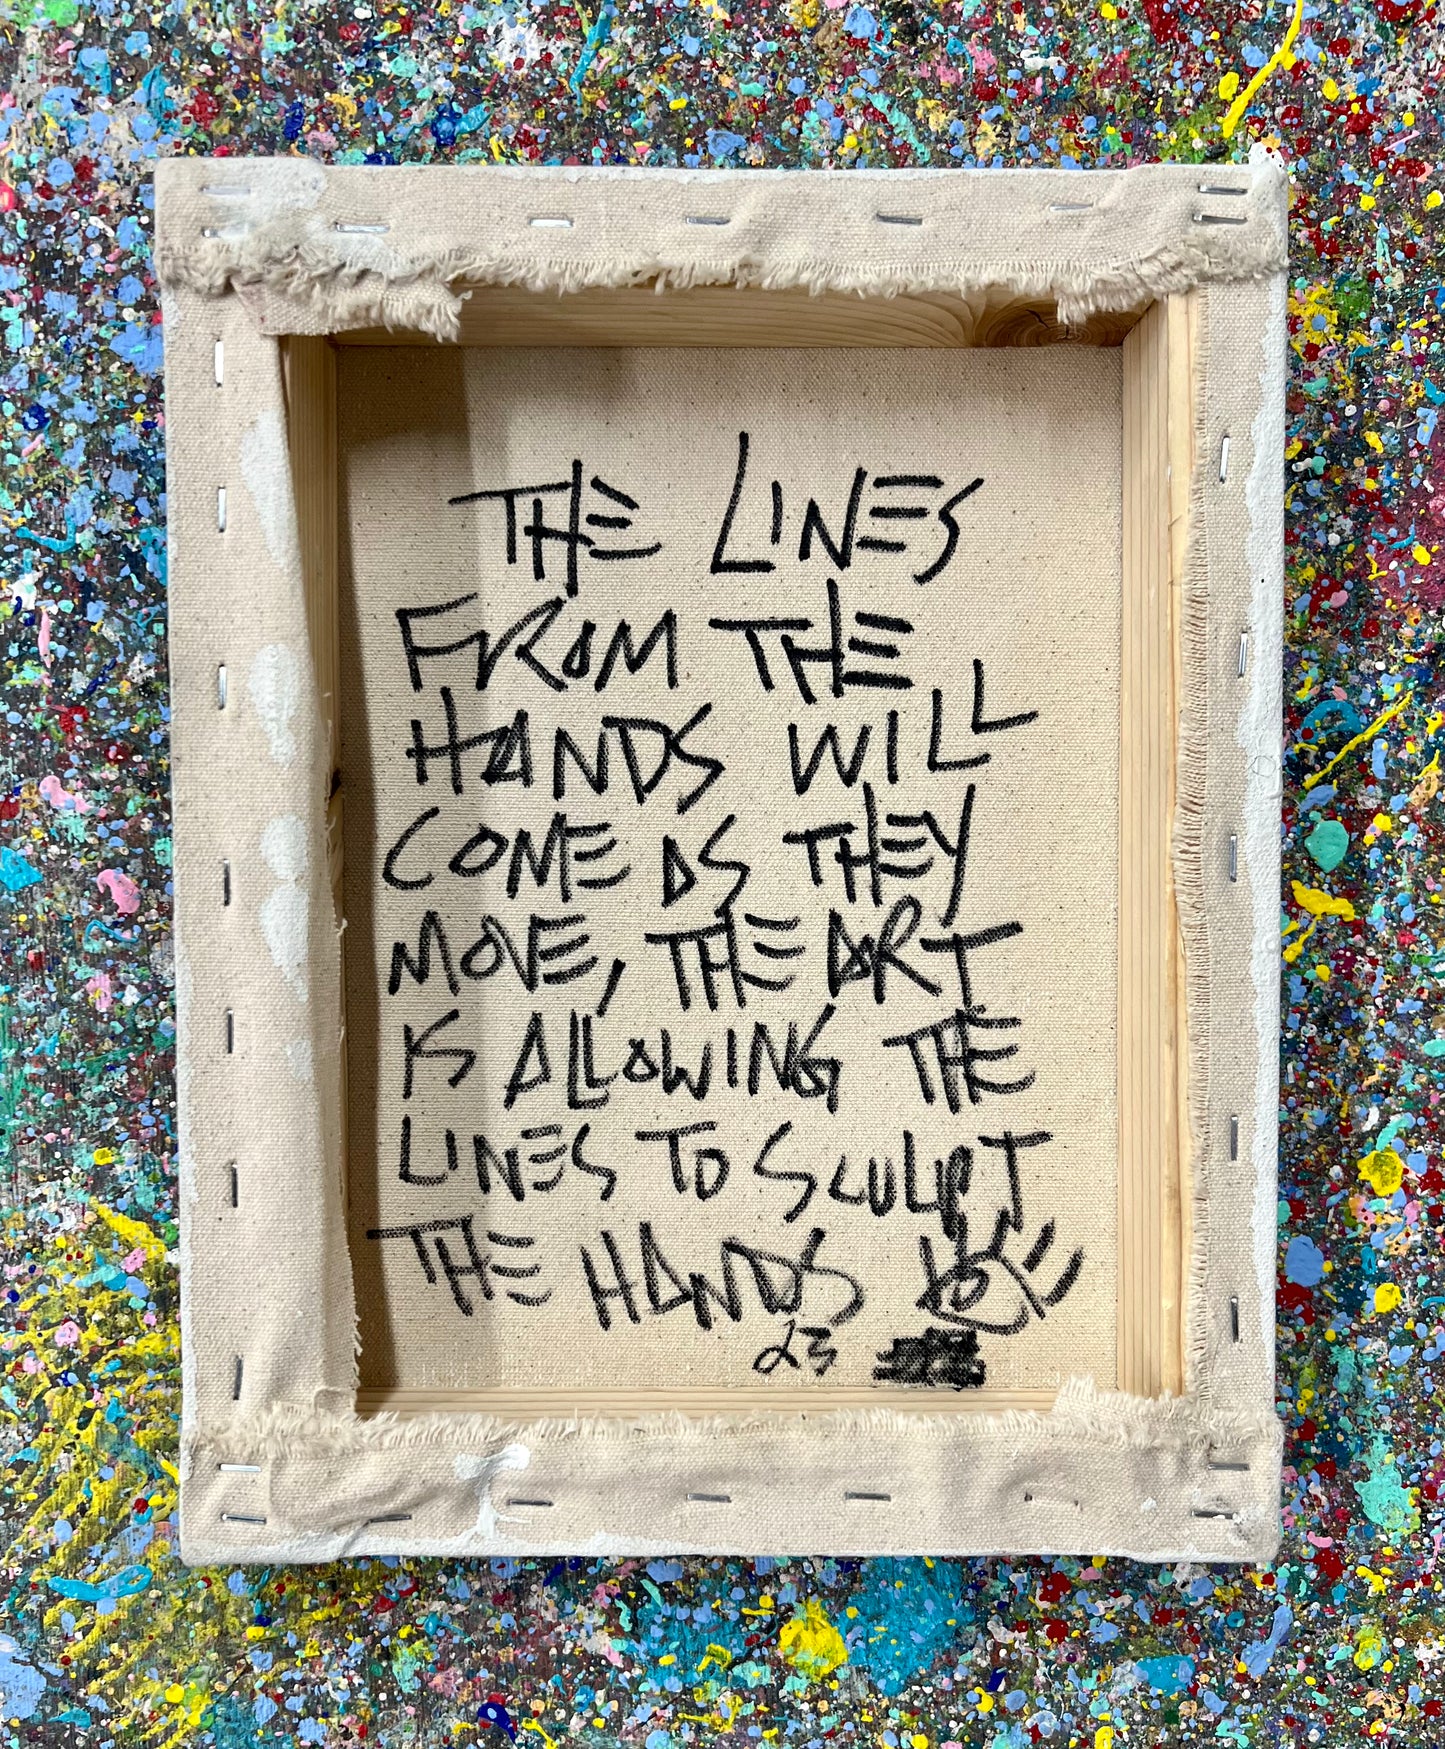 THE LINES
FROM THE
HANDS WILL
COME AS THEY
MOVE, THE ART
IS ALLOWING THE
LINES TO SCULPT
THE HANDS
23